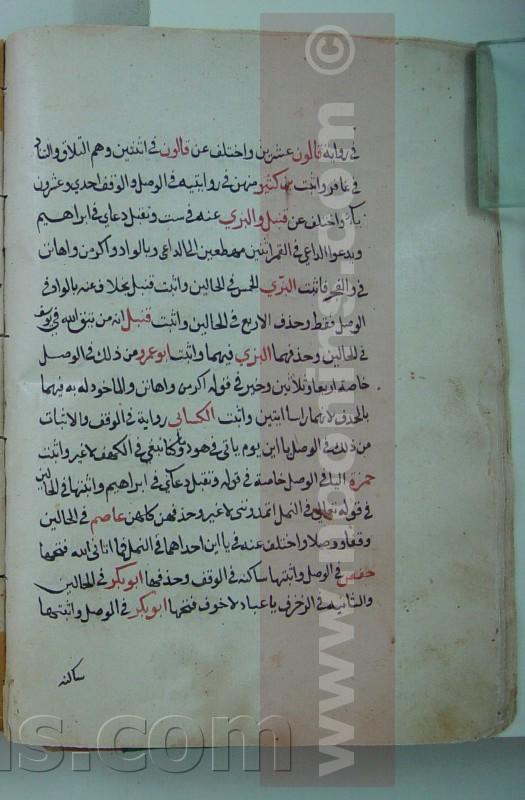 في رواية قالون عشرين واختلف عن قالون في اثنتين وهم التلاق والتناد
في غافر واثبت بن كثير منهن في روايتيه في الوصل والوقف احدى وعشرون
ياء واختلف عن قنبل والبزي عنه في ست وتقبل دعاي في ابراهيم
ويدعوا الداعي في القمر اثنتين مهطعين الى الداعي وبالواد واكرمن واهانن
في والفجر فاثبت البزي الخمس في الحالين واثبت قنبل بخلاف عنه بالواد في
الوصل فقط وحذف الاربع في الحالين واثبت قنبل انه من يتق الله في يوسف
في الحالين وحذفها البزي فيهما واثبت ابو عمرو من ذلك في الوصل
خاصة اربعا وثلاثين وخير في قوله اكرمن واهانن والماخوذ له به فيهما
بالحذف لانهما راسا ايتين واثبت الكسائي رواية في الوقف والاثبات
من ذلك في الوصل يا اين يوم ياتي في هود وما كنا نبغي في الكهف لا غير واثبت
حمزة اليا في الوصل خاصة في قوله وتقبل دعائي في ابراهيم واثبتها في الحالين
في قوله تعالى في النمل اتمدونني لا غير وحذفهن كلهن عاصم في الحالين
وقفا ووصلا واختلف عنه في يا اين احداهما في النمل فما اتاني الله فتحها
حفص في الوصل واثبتها ساكنة في الوقف وحذفها ابوبكر في الحالين
والثانية في الزخرف يا عباد لا خوف فتحها ابوبكر في الوصل واثبتها
ساكنة
www.mpbalins.com ©
ns.com